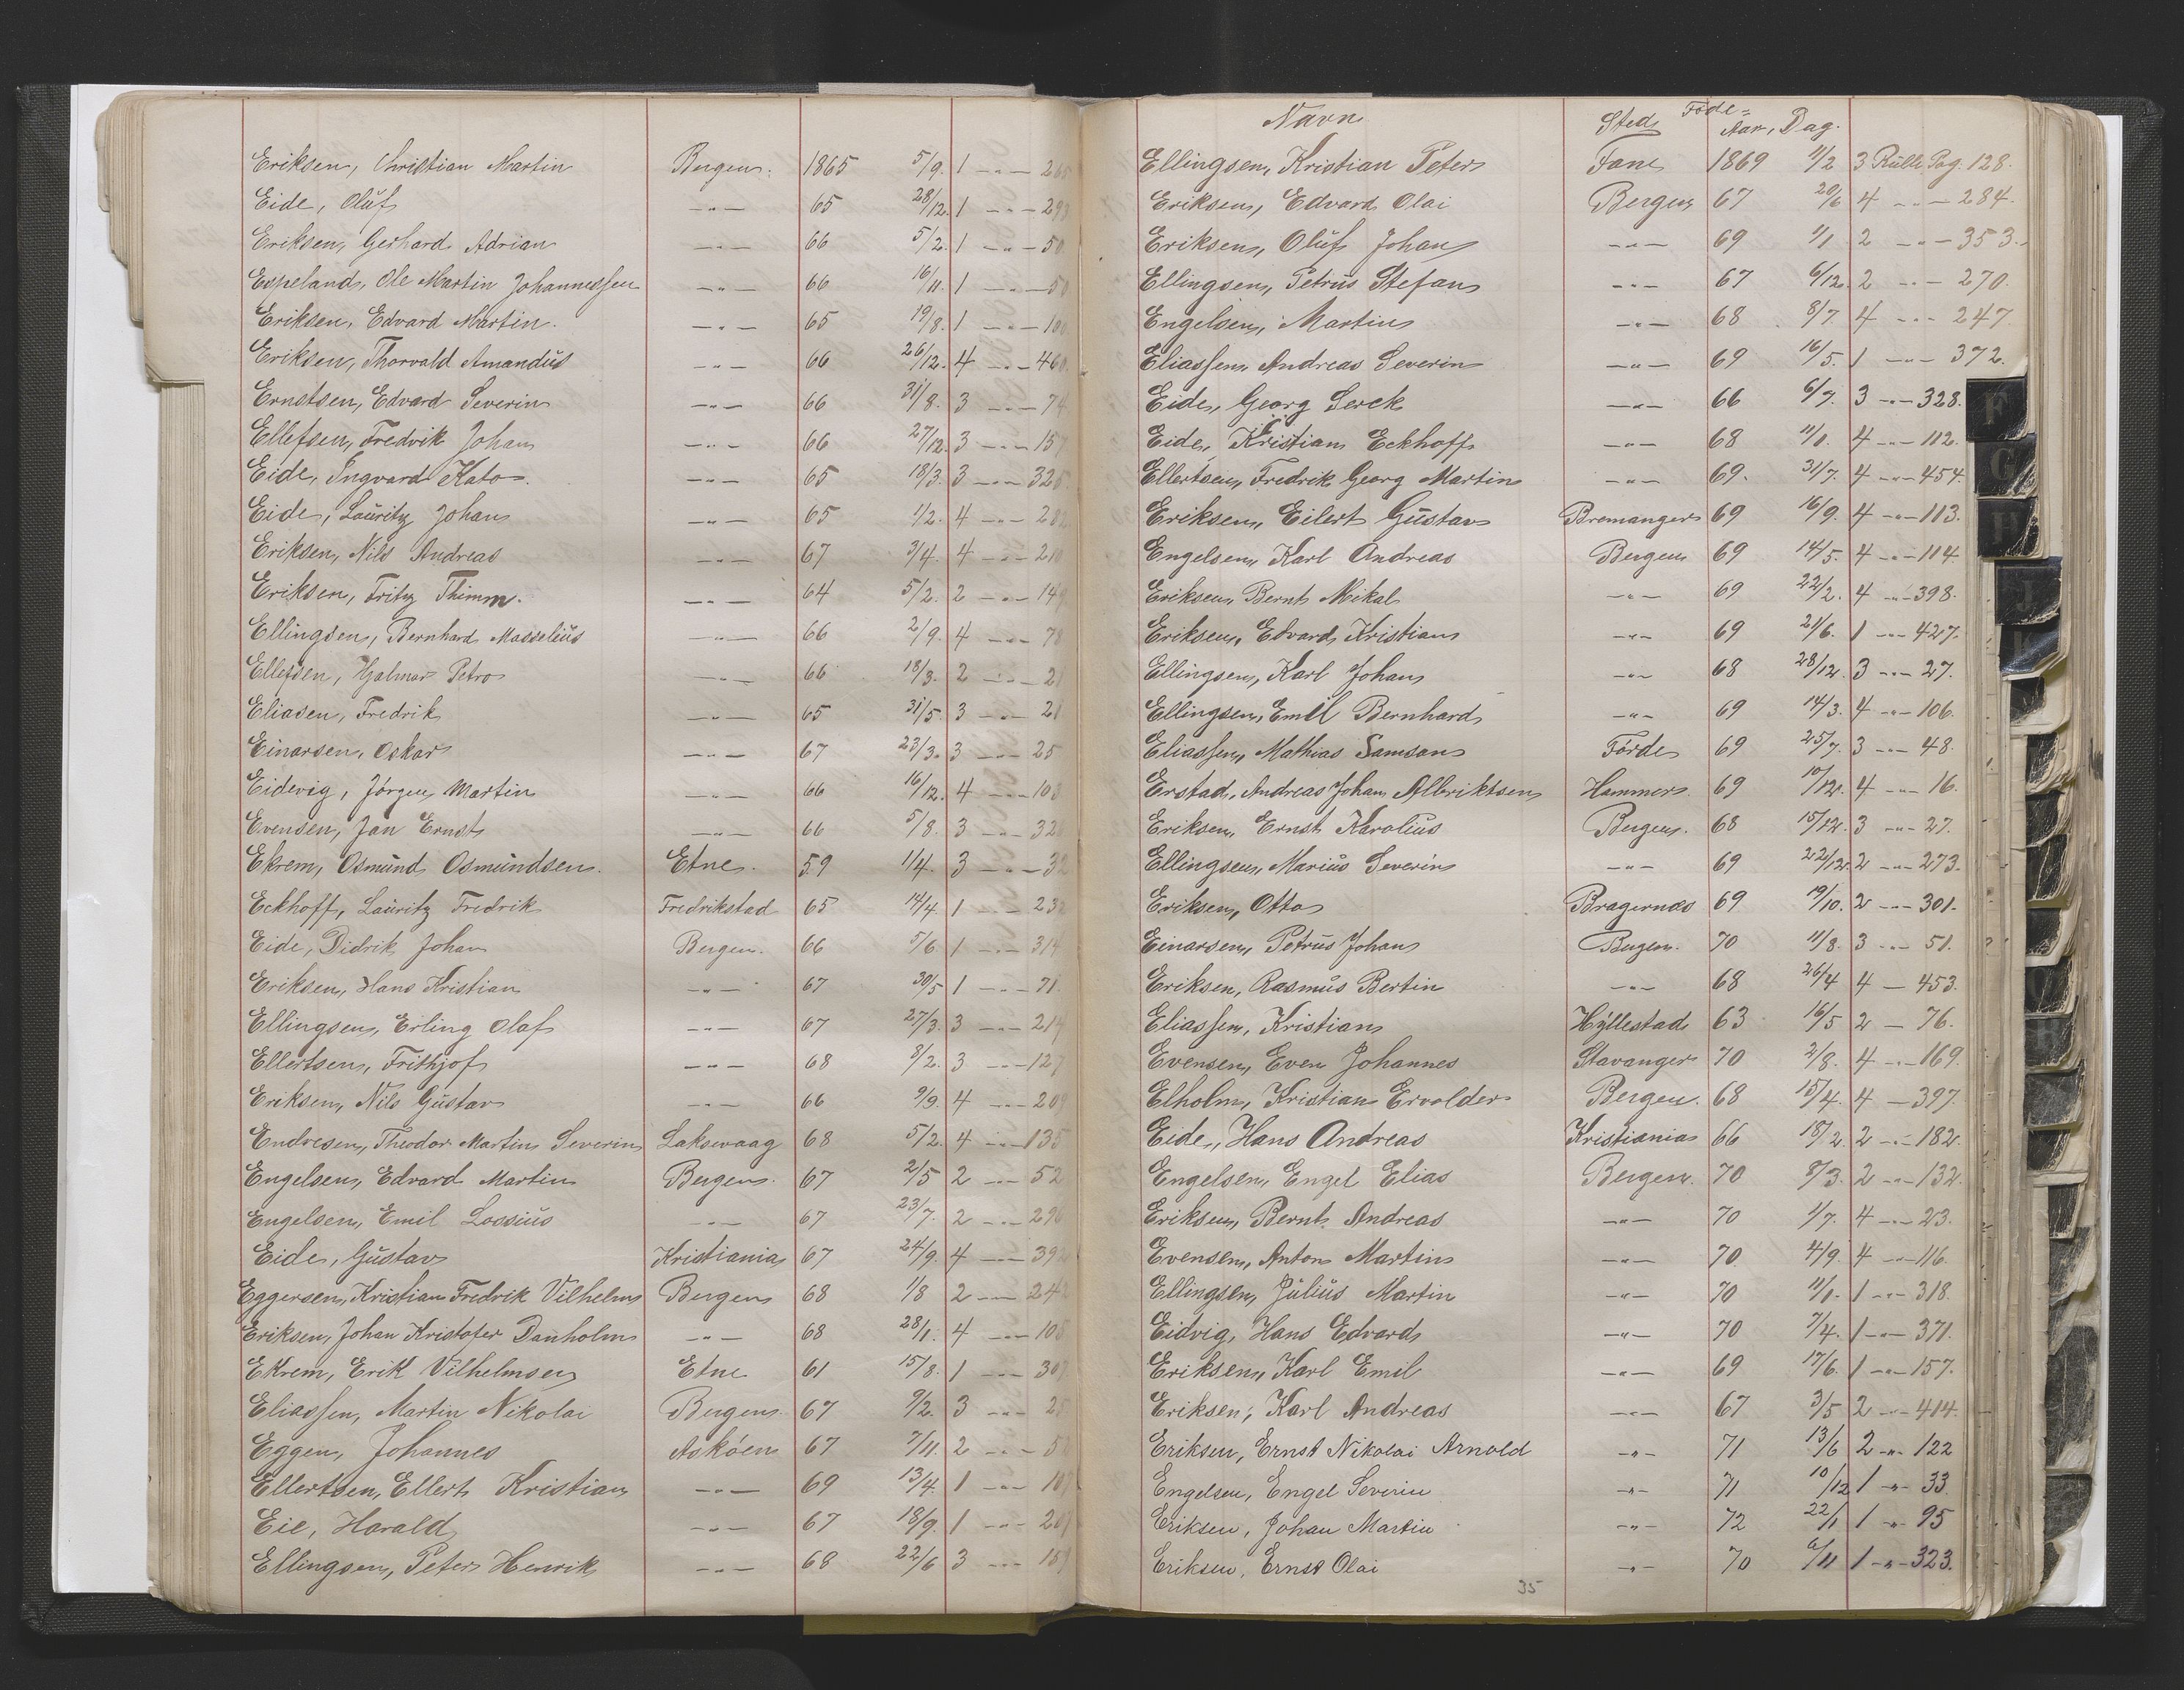 Eriksen, Christian Martin Bergen. 1865 5/9. 1 -"- 265
Eide, Oluf -"- 65 28/12. 1 -"- 293
Eriksen, Gerhard Adrian -"- 66 5/2. 1 -"- 50
Espeland, Ole Martin Johannessen -"- 66 16/11. 1 -"- 50
Eriksen, Edvard Martin. -"- 65 19/8. 1 -"- 100
Eriksen, Thorvald Amandus -"- 66 26/12. 4 -"- 460
Ernstsen, Edvard Severin -"- 66 31/8. 3 -"- 74
Ellefsen, Fredrik Johan -"- 66 27/12. 3 -"- 157
Eide, Ingvard Kato. -"- 65 18/3. 3 -"- 325
Eide, Lauritz Johan -"- 65 1/2. 4 -"- 282
Eriksen, Nils Andreas -"- 67 3/4. 4 -"- 210
Eriksen, Fritz Thimm. -"- 64 5/2. 2 -"- 149
Ellingsen, Bernhard Masselius -"- 66 2/9. 4 -"- 78
Ellefsen, Hjalmar Petro -"- 66 18/3. 2 -"- 21
Eliasen, Fredrik -"- 65 31/5. 3 -"- 21
Einarsen, Oskar -"- 67 23/3. 3 -"- 25
Eidevig, Jörgen Martin -"- 66 16/12. 4 -"- 103
Evensen, Jan Ernst -"- 66 5/8. 3 -"- 32
Ekrem, Osmund Osmundsen. Etne. 59 1/4. 3 -"- 32
Eckhoff, Lauritz Fredrik Fredrikstad 65 14/4 1 -"- 232
Eide, Didrik Johan Bergen. 66 5/6 1 -"- 314
Eriksen, Hans Kristian -"- 67 30/5 1 -"- 71
Ellingsen, Erling Olaf -"- 67 27/3. 3 -"- 214
Ellertsen, Frithjof -"- 68 8/2. 3 -"- 127
Eriksen, Nils Gustav -"- 66 9/9. 4 -"- 209
Endresen, Theodor Martin Severin Laksevaag 68 5/2. 4 -"- 135
Engelsen, Edvard Martin Bergen. 67 2/5 2 -"- 52
Engelsen, Emil Lossius -"- 67 23/7. 2 -"- 296
Eide, Gustav Kristiania 67 24/9. 4 -"- 392
Eggersen, Kristian Fredrik Vilhelm Bergen 68 1/8 2 -"- 242
Eriksen, Johan Kristofer Danholm -"- 68 28/1. 4 -"- 105
Ekrem, Erik Vilhelmsen Etne 61 15/8. 1 -"- 307
Eliassen, Martin Nikolai Bergen. 67 9/2. 3 -"- 25
Eggen, Johannes Asköen 67 7/11. 2 -"- 50
Ellertsen, Ellert Kristian -"- 69 13/4. 1 -"- 107
Eie, Harald -"- 67 18/9. 1 -"- 207
Ellingsen, Peter Henrik -"- 68 22/6 3 -"- 159
Navn Sted Föde= Aar, Dag.
Ellingsen, Kristian Peter Fane 1869 11/2 3 Rulle Pag. 128.
Eriksen, Edvard Olai Bergen 67 20/6 4 -"- 284.
Eriksen, Oluf Johan -"- 69 1/1 2 -"- 353.
Ellingsen, Petrus Stefan -"- 67 6/12. 2 -"- 270.
Engelsen, Martin -"- 68 8/7 4 -"- 247.
Eliassen, Andreas Severin -"- 69 16/5. 1 -"- 372.
Eide, Georg Lerck -"- 66 6/7. 3 -"- 328.
Eide, Kristian Eckhoff -"- 68 11/1. 4 -"- 112.
Ellertsen, Fredrik Georg Martin -"- 69. 31/7. 4 -"- 454.
Eriksen, Eilert Gustav Bremanger 69 16/9. 4 -"- 113.
Engelsen, Karl Andreas Bergen 69 14/5. 4 -"- 114.
Eriksen, Bernt Mikal -"- 69 22/2. 4 -"- 398.
Eriksen, Edvard Kristian -"- 69 21/6. 1 -"- 427.
Ellingsen, Karl Johan -"- 68 28/12. 3 -"- 27.
Ellingsen, Emil Bernhard -"- 69 14/3. 4 -"- 106.
Eliassen, Mathias Samson Förde 69 25/7. 3 -"- 48.
Erstad, Andreas Johan Albriktsen Hammer. 69 10/12. 4 -"- 16.
Eriksen, Ernst Karolius Bergen. 68 15/12. 3 -"- 27.
Ellingsen, Marius Severin -"- 69 22/12. 2 -"- 273.
Eriksen, Otto Bragernæs 69 19/10. 2 -"- 301.
Einarsen, Petrus Johan Bergen. 70 11/8. 3 -"- 51.
Eriksen, Rasmus Bertin -"- 68 26/4 4 - 453.
Eliassen, Kristian Hyllestad 63 16/5 2 - 76.
Evensen, Even Johannes Stavanger 70 2/8. 4 -"- 169.
Elholm, Kristian Ervolder Bergen. 68 15/4. 4 - 397.
Eide, Hans Andreas Kristiania 66 18/2. 2 -"- 182.
Engelsen, Engel Elias Bergen. 70 8/3. 2 -"- 132.
Eriksen, Bernt Andreas -"- 70 1/7. 4 -"- 23.
Evensen, Anton Martin -"- 70 4/9. 4 -"- 116.
Ellingsen, Julius Martin -"- 70 11/1. 1 -"- 318.
Eidvig, Hans Edvard -"- 70 7/4. 1 -"- 371.
Eriksen, Karl Emil -"- 69 17/6. 1 -"- 157.
Eriksen, Karl Andreas -"- 67 3/5 2 -"- 414.
Eriksen, Ernst Nikolai Arnold -"- 71 13/6 2 -"- 122
Engelsen, Engel Severin -"- 71 10/12 1 -"- 33.
Eriksen, Johan Martin -"- 72 22/1 1 -"- 95
Eriksen, Ernst Olai -"- 70 6/11 1 -"- 323.
35
F
G
H
J
K